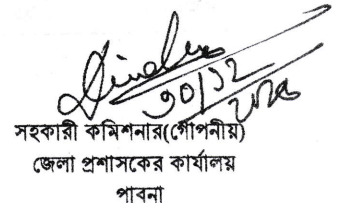 ৩০/১২
সহকারী কমিশনার(গোপনীয়)
জেলা প্রশাসকের কার্যালয়
পাবনা